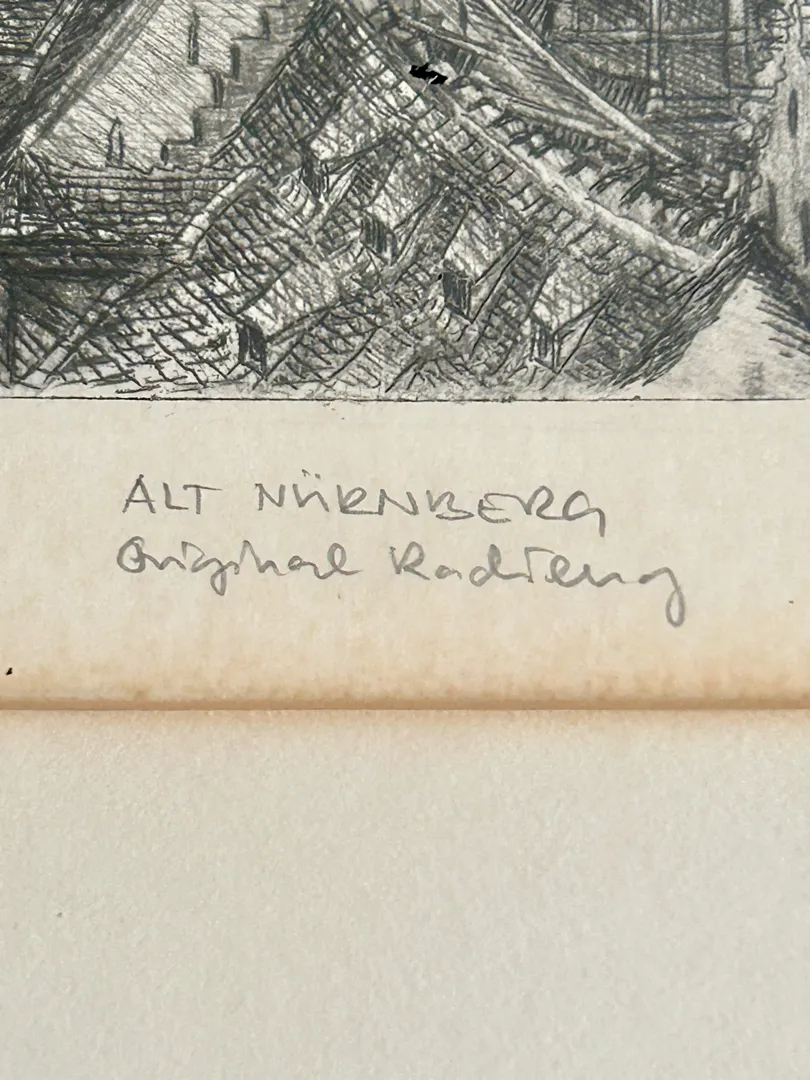 ALT NÜRNBERG
Original Radierung